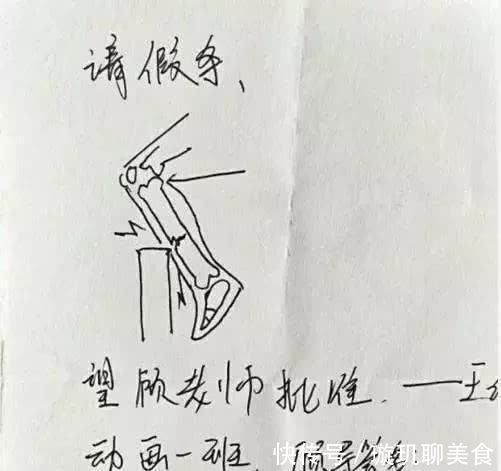 请假条、
望顾老师批准.——王
动画一班.
快传号/游玑聊美食